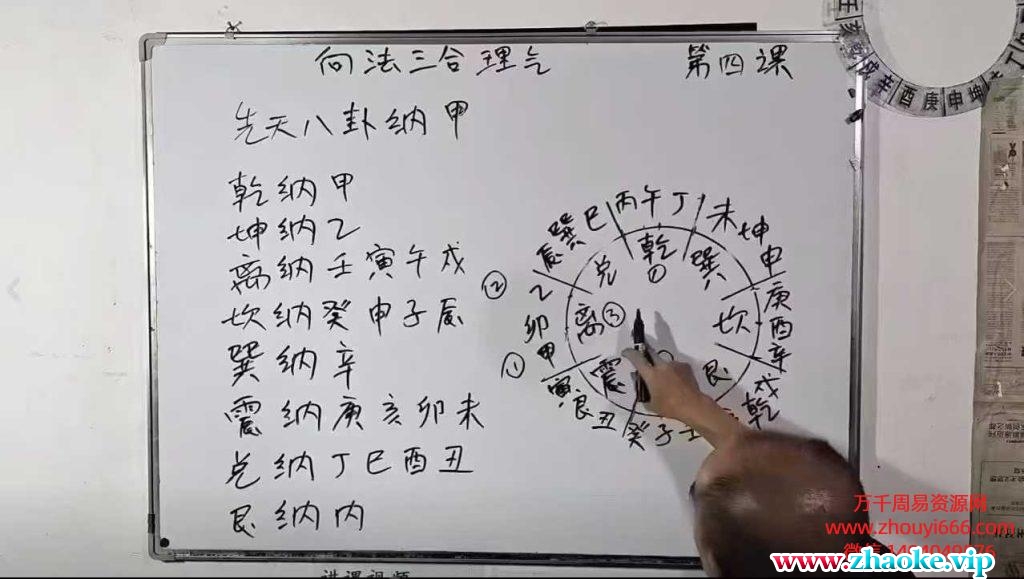 向法三合理气 第四课
先天八卦纳甲
乾纳甲
坤纳乙
离纳壬寅午戌
坎纳癸申子辰
巽纳辛
震纳庚亥卯未
兑纳丁巳酉丑
艮纳内
丙午丁
未坤申
庚酉辛
戌乾
癸子壬
丑艮寅
甲卯乙
辰巽巳
乾①
巽
坎
艮
震
离③
兑
②
①
壬
戌辛酉庚申坤
丁
万千周易资源网
www.zhouyi666.com
www.zhaoke.vip